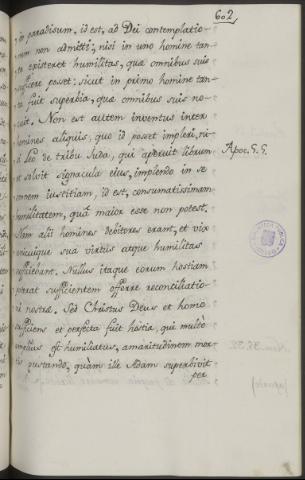 602
in paradisum, id est, ad Dei contemplatio-
nem non admitti; nisi in uno homine tan-
ta existeret humilitas, qua omnibus suis
sufficere posset: sicut in primo homine tan-
ta fuit superbia, qua omnibus suis no-
cuit. Non est autem inventus inter
homines aliquis, quo id posset impleri, ni-
si Leo de tribu Juda, qui aperuit librum
et solvit signacula eius, implendo in se
omnem iustitiam, id est, consumatissimam
humilitatem, quâ maior esse non potest.
Nam alii homines debitores erant, et vix
unicuique sua virtus atque humilitas
sufficiebant. Nullus itaque eorum hostiam
poterat sufficientem offerre reconciliatio-
ni nostræ. Sed Christus Deus et homo
sufficiens et perfecta fuit hostia, qui multo
amplius est humiliatus, amaritudinem mor-
tis gustando, quàm ille Adam superbivit
per
Apoc. 5. 5.